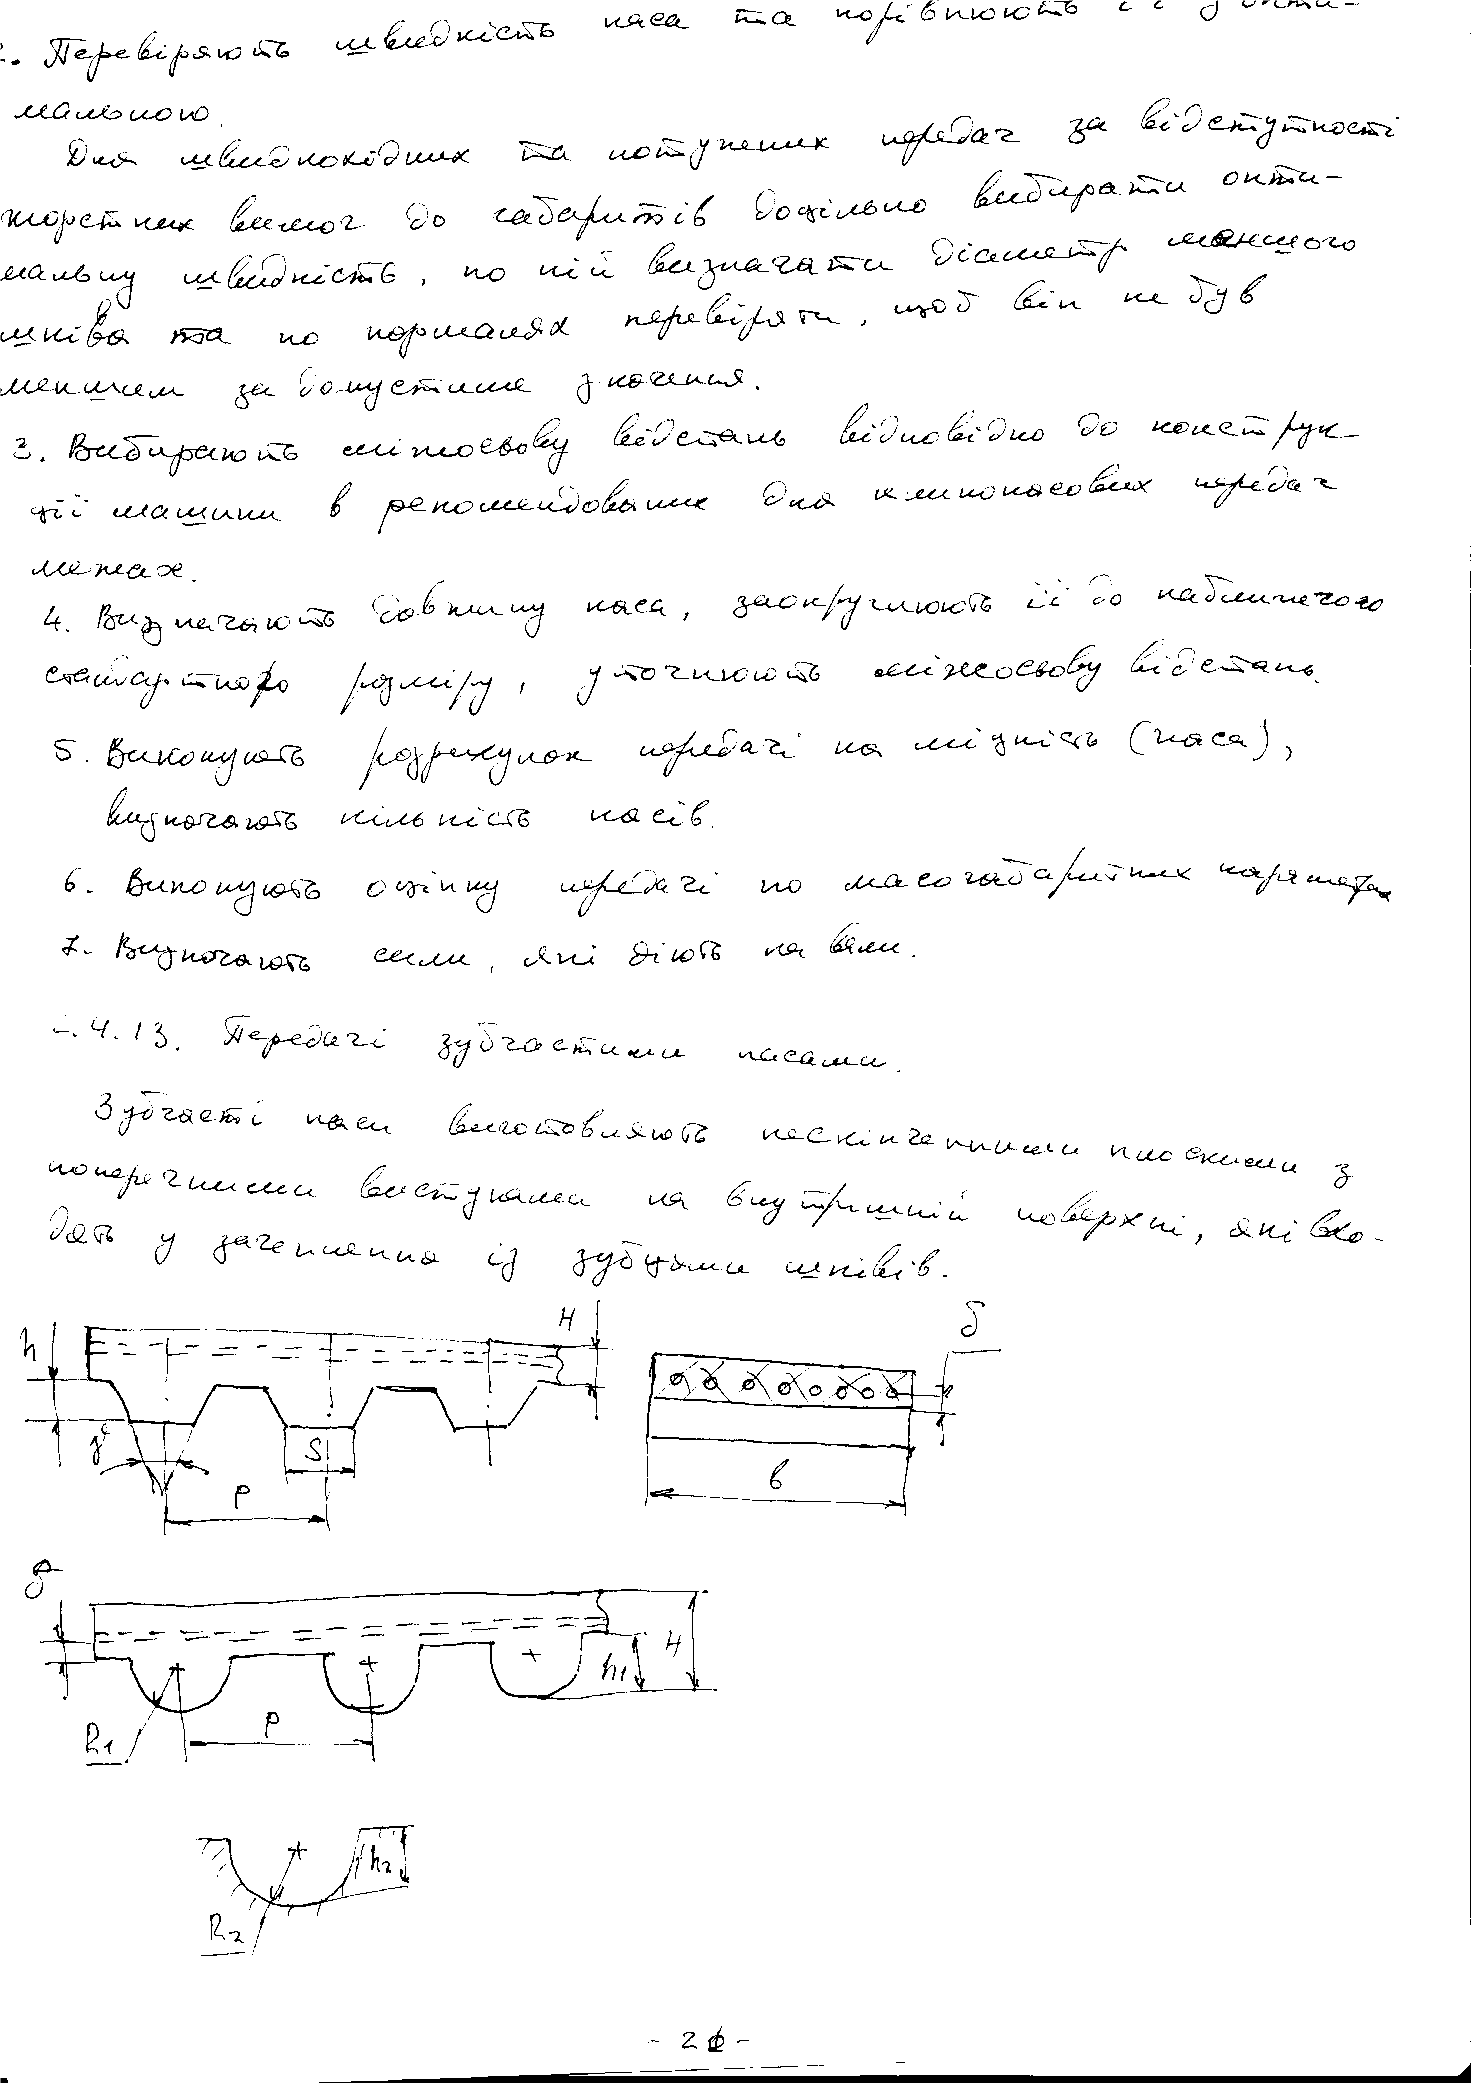 2. Перевіряють швидкість паса та порівнюють її з опти-
мальною.
Для швидкохідних та потужних передач за відсутності
жорстких вимог до габаритів доцільно вибирати опти-
мальну швидкість, по ній визначати діаметр меншого
шківа та по нормалях перевіряти, щоб він не був
меншим за допустиме значення.
3. Вибирають міжосьову відстань відповідно до конструк-
ції машини в рекомендованих для клинопасових передач
межах.
4. Визначають довжину паса, заокруглюють її до найближчого
стандартного розміру, уточнюють міжосьову відстань.
5. Виконують розрахунок передачі на міцність (паса),
визначають кількість пасів.
6. Виконують оцінку передачі по масогабаритних параметрах
7. Визначають сили, які діють на вали.
4.13. Передачі зубчастими пасами.
Зубчасті паси виготовляють нескінченними плоскими з
поперечними виступами на внутрішній поверхні, які вхо-
дять у зачеплення із зубцями шківів.
h H δ
γ S
P в
δ
h1 H
R1 P
h2
R2